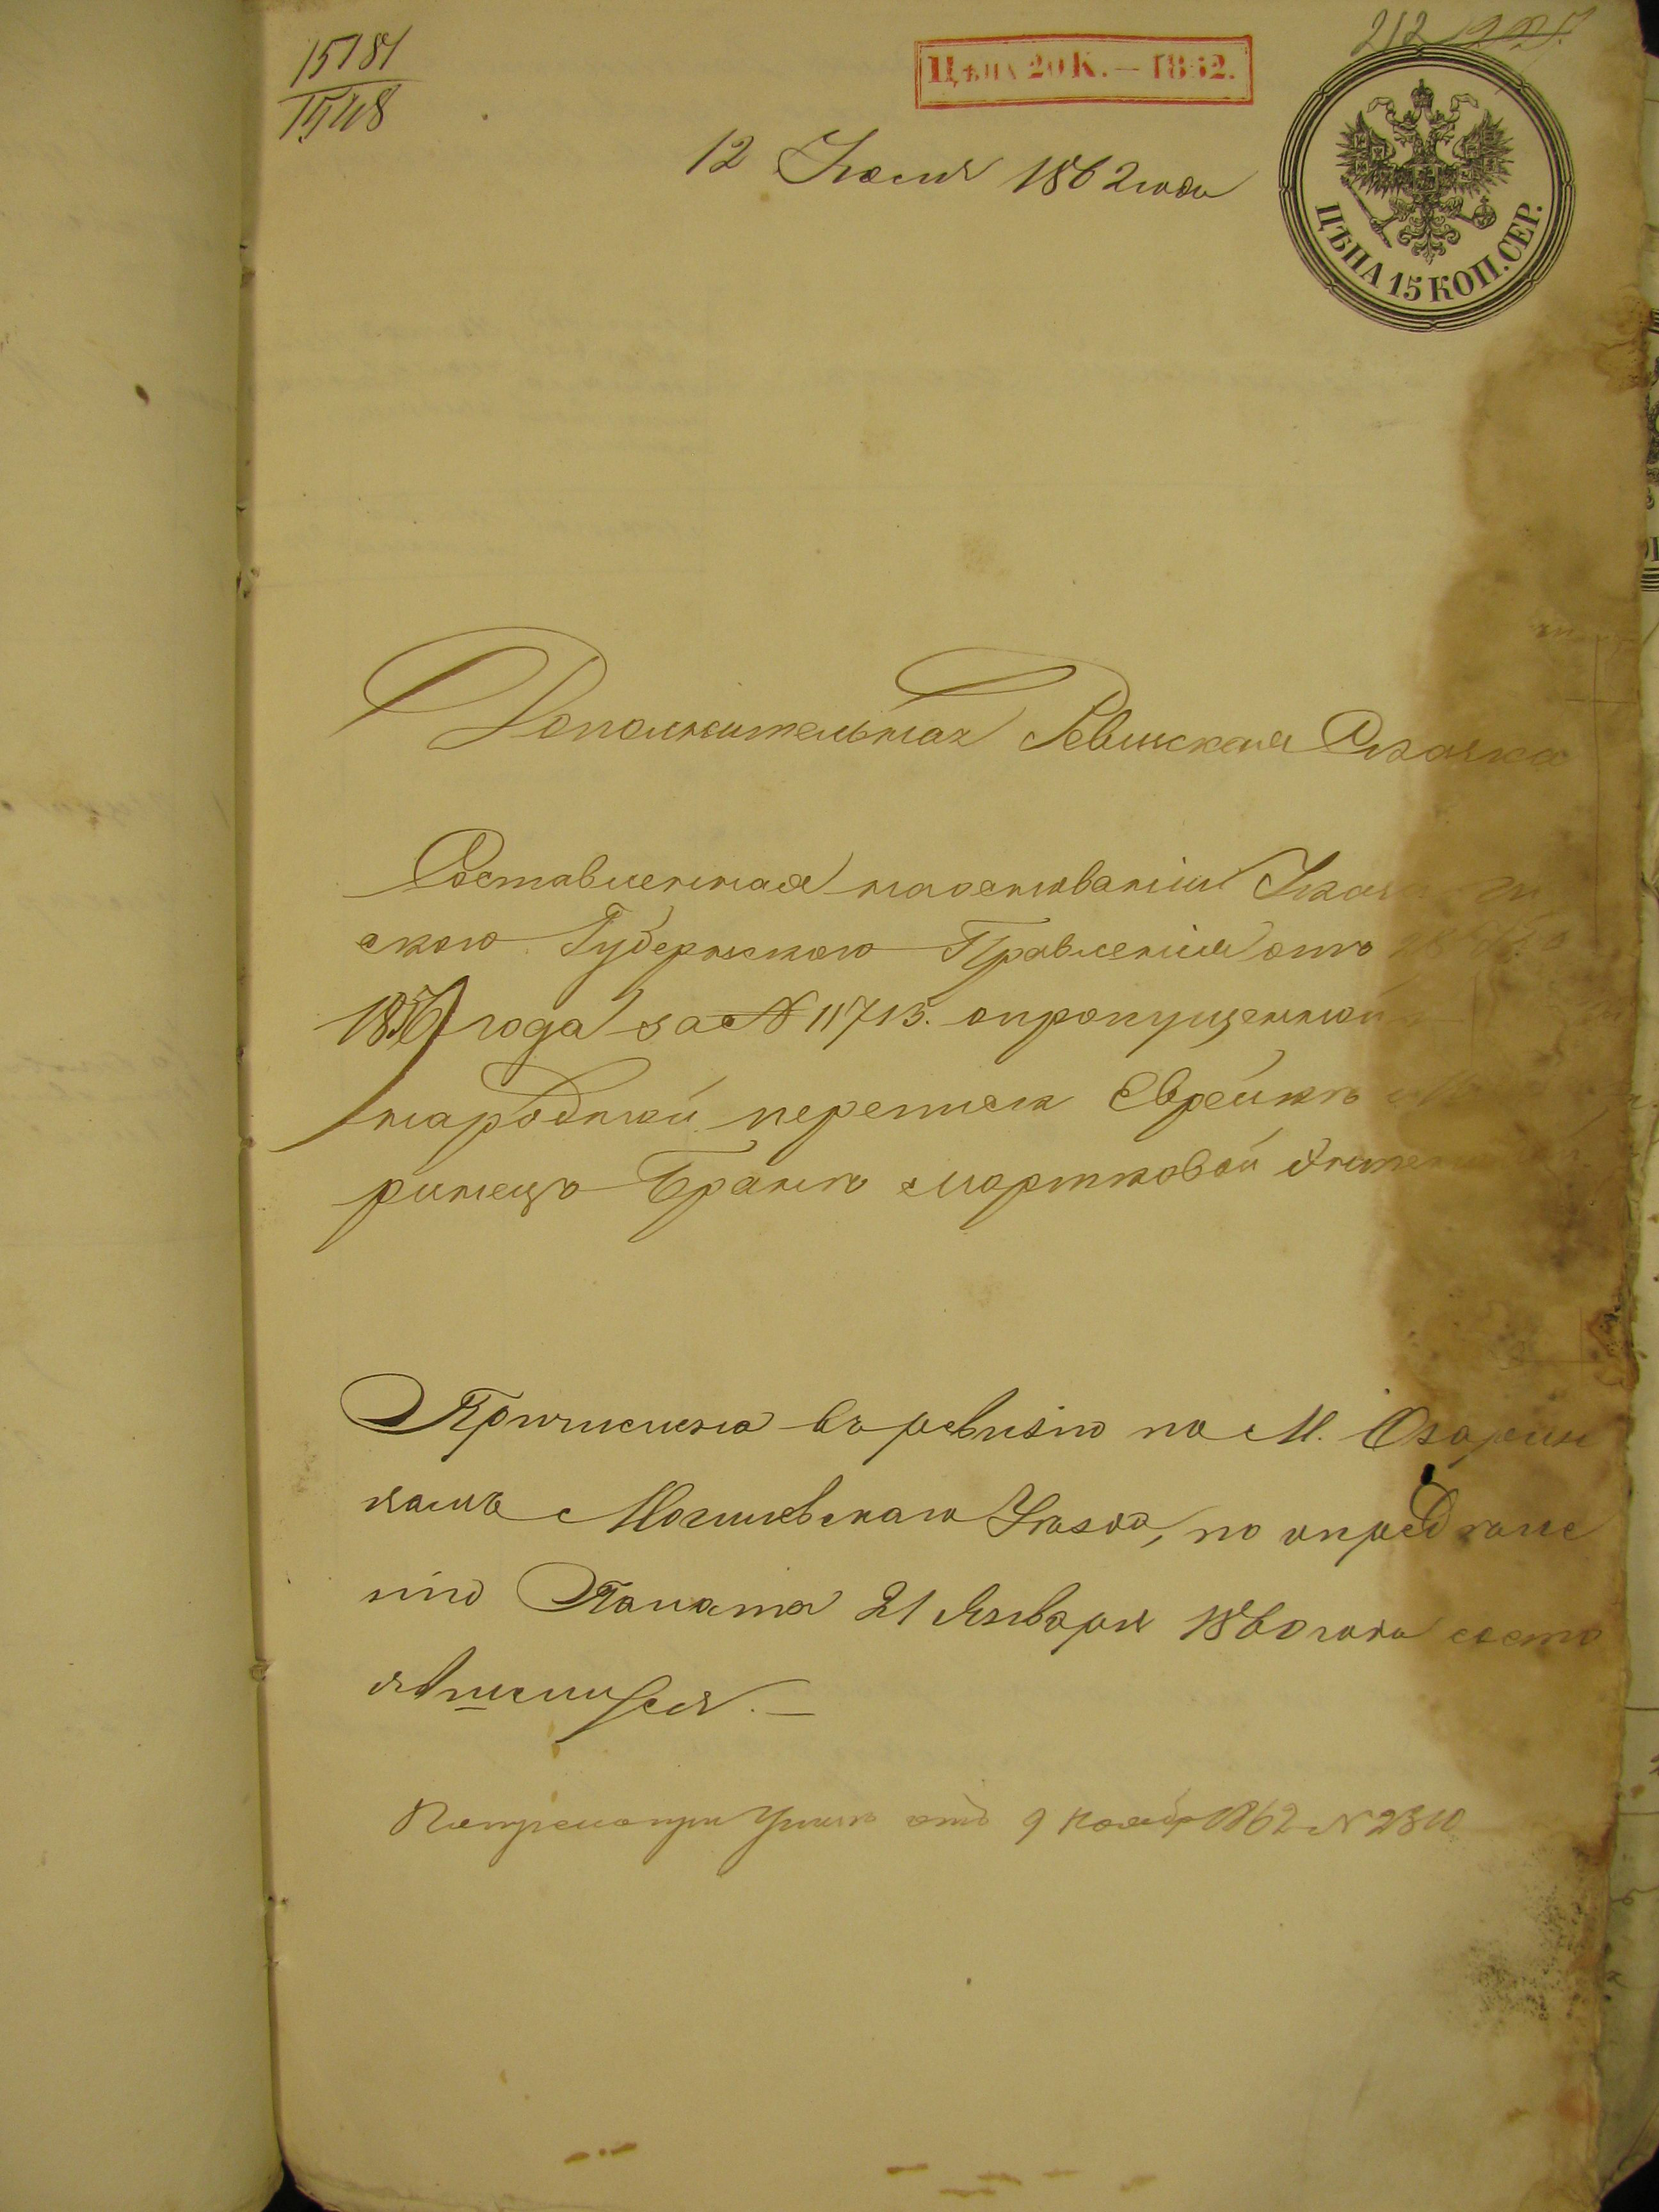 15181
15148
212
Цѣна 20 К. — 1862.
ЦѢНА 15 КОП. СЕР.
12 Июля 1862 года
Дополнительная Ревизская Сказка
Составленная наосновании Указа
скаго Губернскаго Правления отъ
1856 года за № 11713. опропущенной
народной переписи Еврейкѣ
ринецъ Бранѣ Мортковой
Причислена въ ревизію по М. Озарин
цамъ Могилевскаго Уѣзда, по опредѣле
нію Палаты 21 Января 1860 года состо
явшемуся. —
отъ 9 Ноября 1862 № 2310